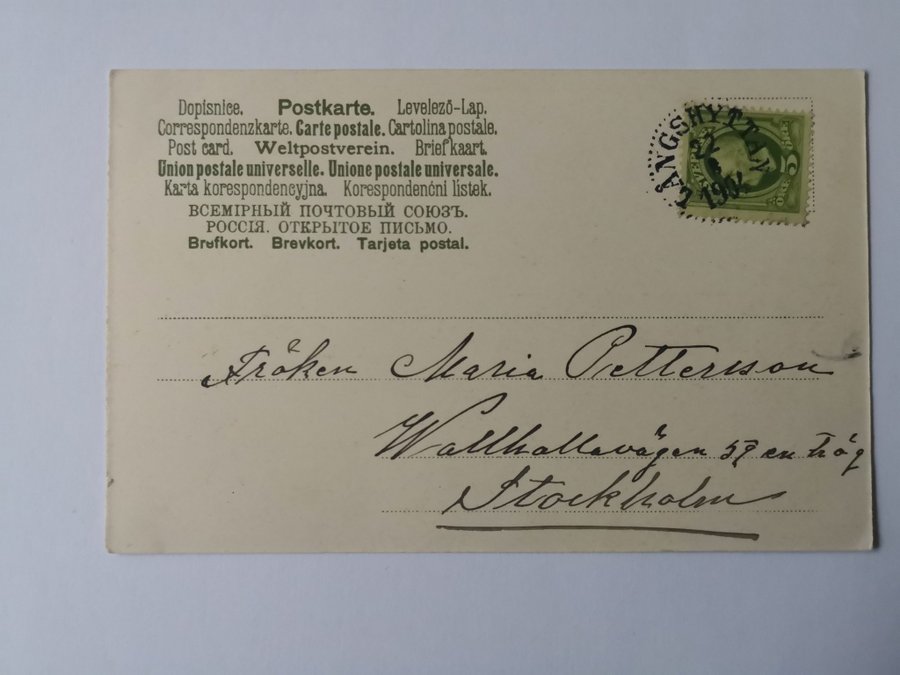 Dopisnice. Postkarte. Levelező-Lap.
Correspondenzkarte. Carte postale. Cartolina postale.
Post card. Weltpostverein. Briefkaart.
Union postale universelle. Unione postale universale.
Karta korespondencyjna. Korespondenční lístek.
ВСЕМІРНЫЙ ПОЧТОВЫЙ СОЮЗЪ.
РОССІЯ. ОТКРЫТОЕ ПИСЬМО.
Brefkort. Brevkort. Tarjeta postal.
LÅNGSHYTTAN
5
Fröken Maria Pettersson
Wallhallavägen 59 en
Stockholm